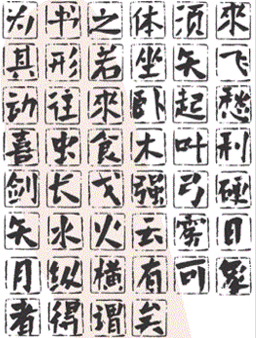 为书之体须來
其形若坐矢飞
动往來卧起愁
喜虫食木叶利
剑长戈强弓硬
矢水火云雾日
月纵横有可象
者得谓矣